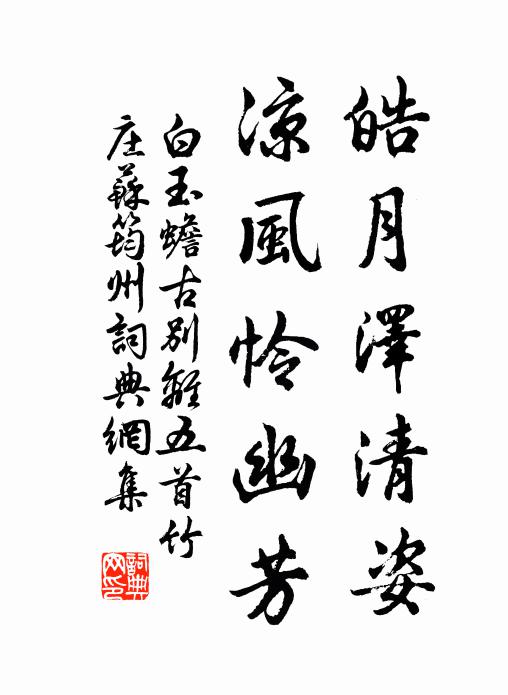 皓月澤清姿
涼風怜幽芳
白玉蟾古別離五首竹
庄蘇筠州詞典網集
詞典網印